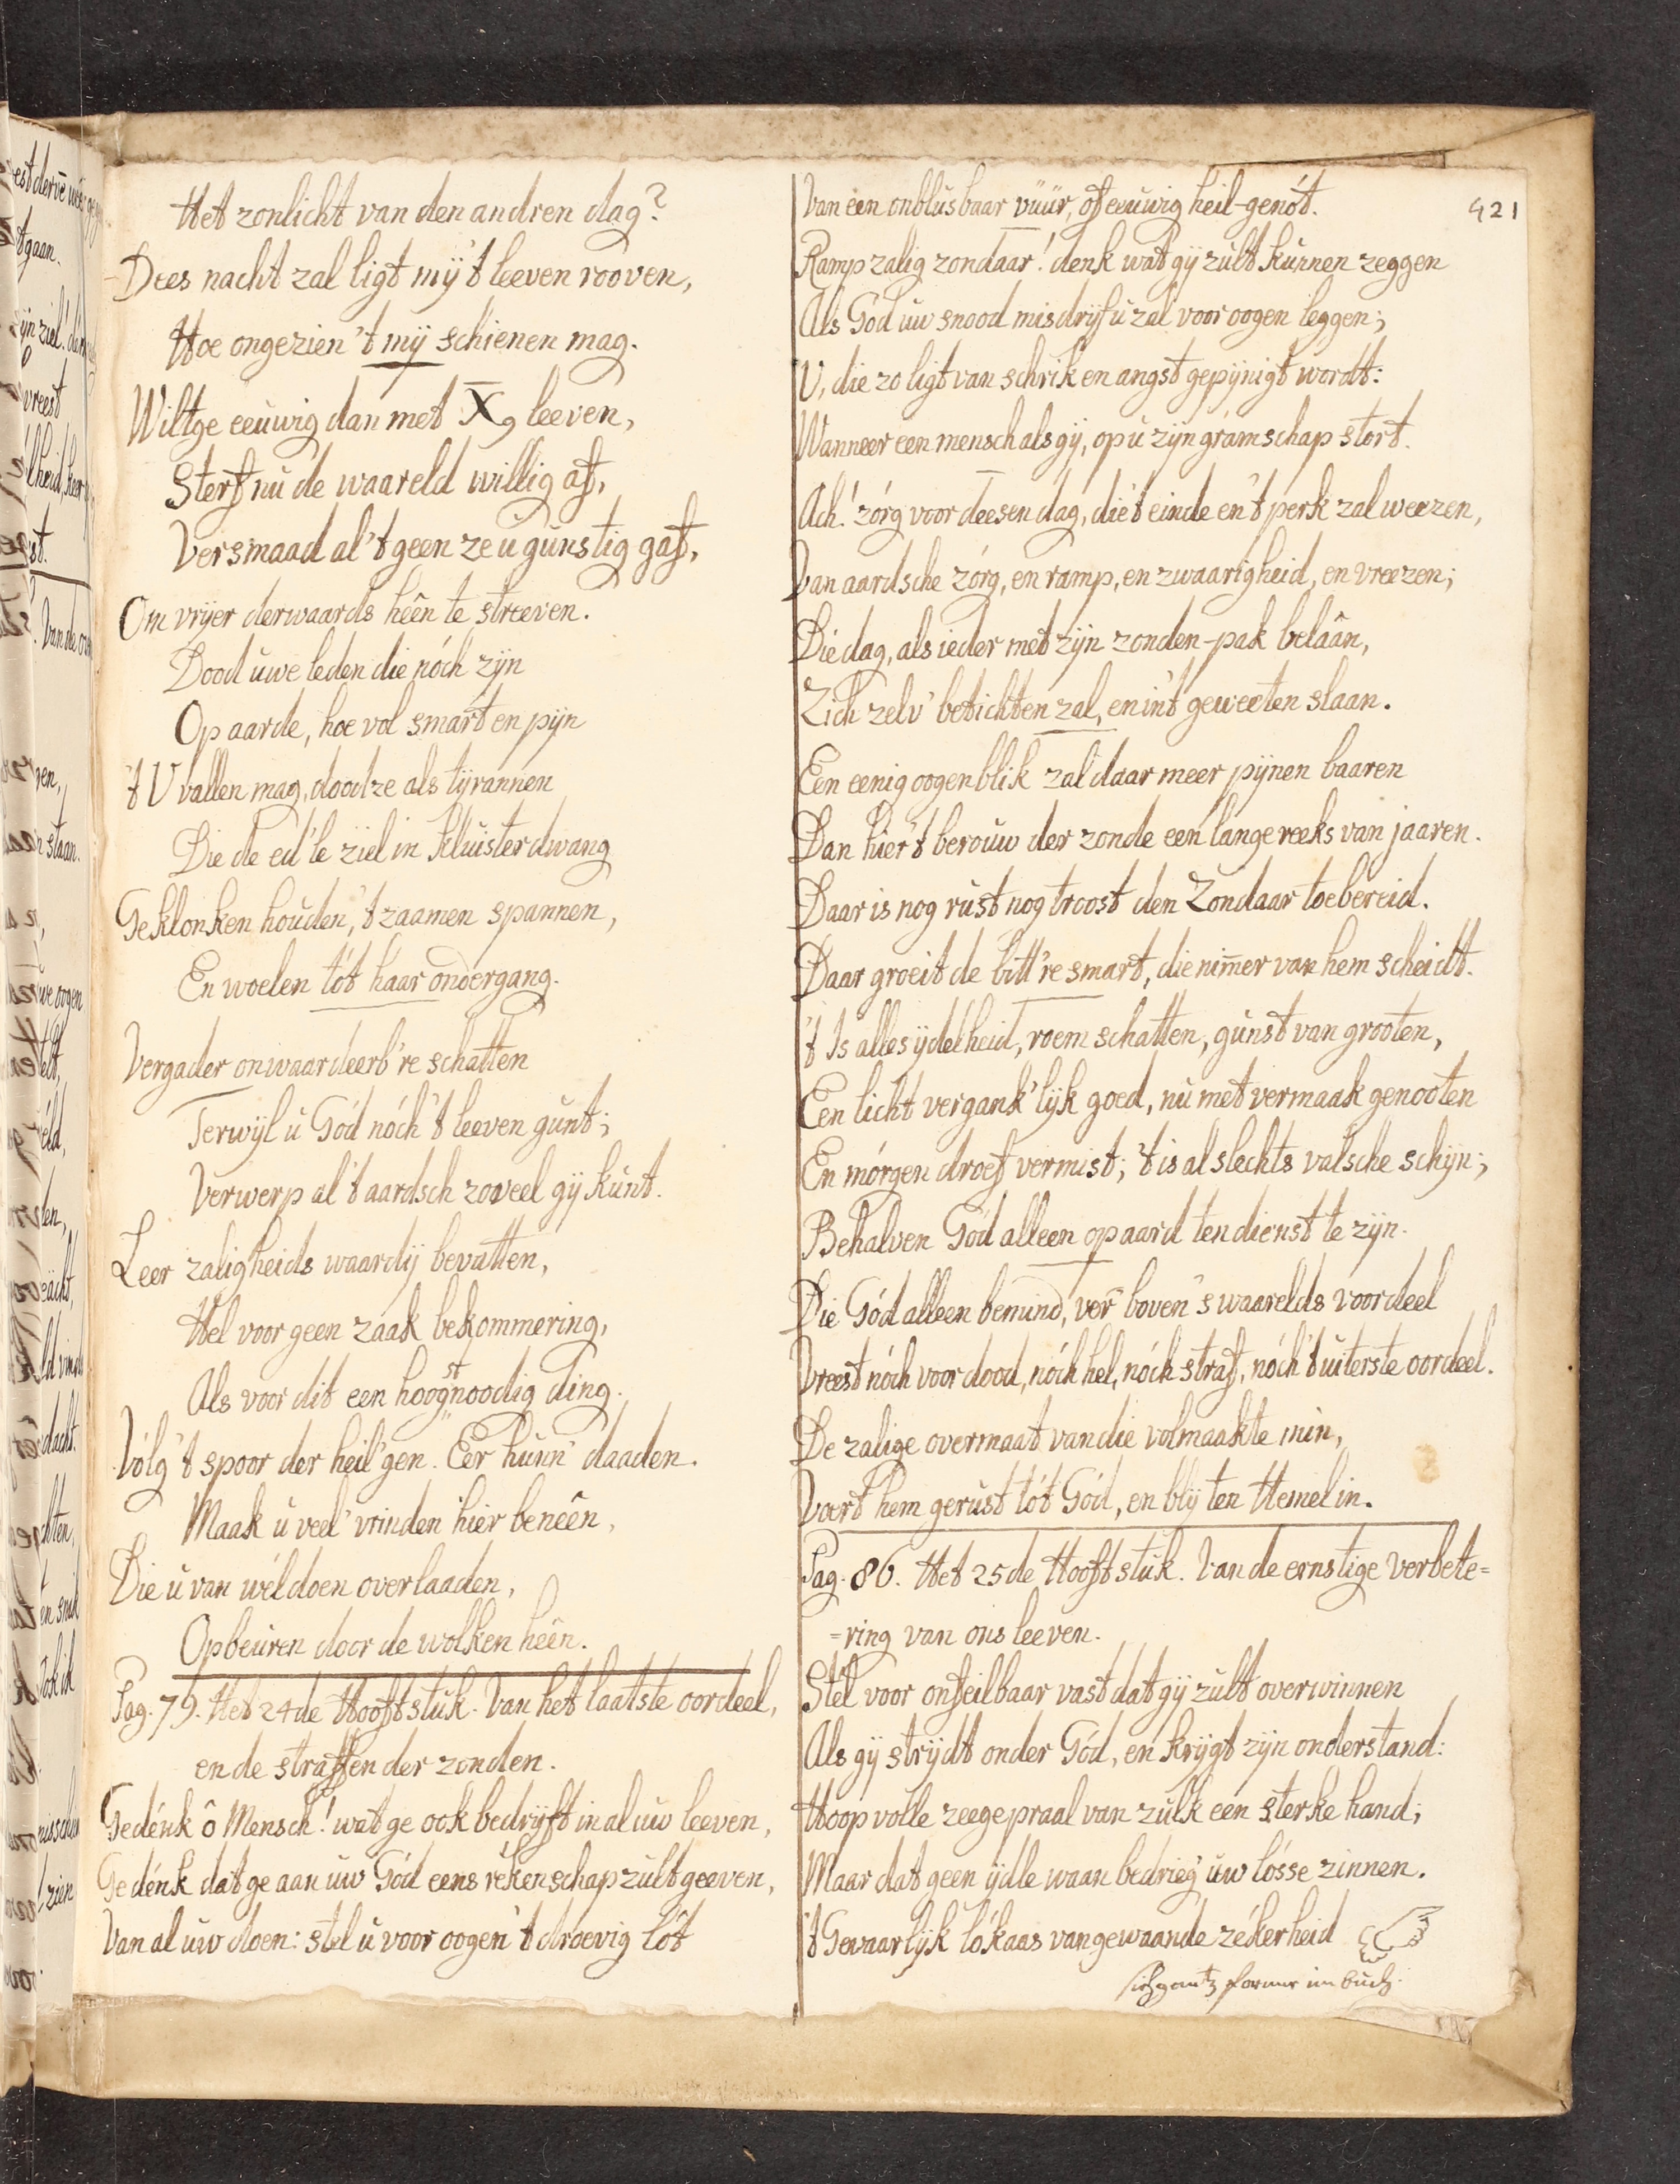 Het zonlicht van den andren dag?
Dees nacht zal ligt mÿ't leeven rooven,
Hoe ongezien 't mÿ schienen mag.
Wiltge eeuwig dan met X9 leeven,
Sterf nu de waareld willig af,
Versmaad al 't geen ze u gunstig gaf,
Om vrÿer derwaards heên te streeven.
Dood uwe leden die nóch zÿn
Op aarde, hoe vol smart en pÿn
't U vallen mag, dood ze als tÿrannen
Die de ed'le ziel in kluisterdwang
Geklonken houden, 't zaamen spannen,
En woelen tót haar ondergang.
Vergader onwaardeerb're schatten
Terwÿl u Gód nóch 't leeven gunt;
Verwerp al 't aardsch zoveel gÿ kunt.
Leer zaligheids waardÿ bevatten,
Hel voor geen zaak bekommering,
Als voor dit een hoogstnoodig ding.
Vólg 't spoor der heil'gen. Eer hunn' daaden.
Maak u veel' vrinden hier beneên,
Die u van wéldoen overlaaden,
Opbeuren door de wolken heên.
Pag. 79. Het 24de Hooftstuk. Van het laatste oordeel,
en de straffen der zonden.
Gedénk ô Mensch! wat ge ook bedrÿft in al uw leeven,
Gedénk dat ge aan uw Gód eens rékenschap zult geeven,
Van al uw doen: stel u voor oogen 't droevig lót
421
Van een onblusbaar vüür, of eeuwig heil-genót.
Rampzalig zondaar! denk wat gÿ zult kunnen zeggen
Als Gód uw snood misdrÿf u zal voor oogen leggen;
U, die zo ligt van schrik en angst gepÿnigt wordt:
Wanneer een mensch als gÿ, op u zÿn gramschap stort.
Ach! zórg voor deesen dag, die 't einde en 't perk zal weezen,
Van aardsche zórg, en ramp, en zwaarigheid, en vreezen;
Die dag, als ieder met zÿn zonden-pak belaân,
Zich zelv' betichten zal, en in 't geweeten slaan.
Een eenig oogenblik zal daar meer pÿnen baaren
Dan hier 't berouw der zonde een lange reeks van jaaren.
Daar is nog rust nog troost den Zondaar toebereid.
Daar groeit de bitt're smart, die nim̄er van hem scheidt.
't Is alles ÿdelheid, roem schatten, gunst van grooten,
Een licht vergank'lÿk goed, nu met vermaak genooten
En mórgen droef vermist; 't is al slechts valsche schÿn;
Behalven Gód alleen op aard ten dienst te zÿn.
Die Gód alleen bemind, ver boven 's waarelds voordeel
Vreest nóch voor dood, nóch hel, nóch straf, nóch 't uiterste oordeel.
De zalige overmaat van die volmaakte min,
Voert hem gerust tót Gód, en blÿ ten Hemel in.
Pag. 86. Het 25de Hooftstuk. Van de ernstige verbete=
=ring van ons leeven.
Stél voor onfeilbaar vast dat gÿ zult overwinnen
Als gÿ strÿdt onder Gód, en krÿgt zÿn onderstand:
Hoop volle zeegepraal van zulk een sterke hand;
Maar dat geen ÿdle waan bedrieg' uw lósse zinnen.
't Gevaarlÿk lókaas van gewaande zékerheid
im buch.